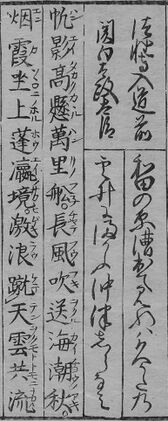 法性寺入道前
関白太政大臣
和田の原漕出てみれは久かたの
雲井にまかふ沖津志らなみ
帆影高懸萬里船長風吹送海潮秋
烟霞坐上蓬瀛境激浪蹴天雲共流